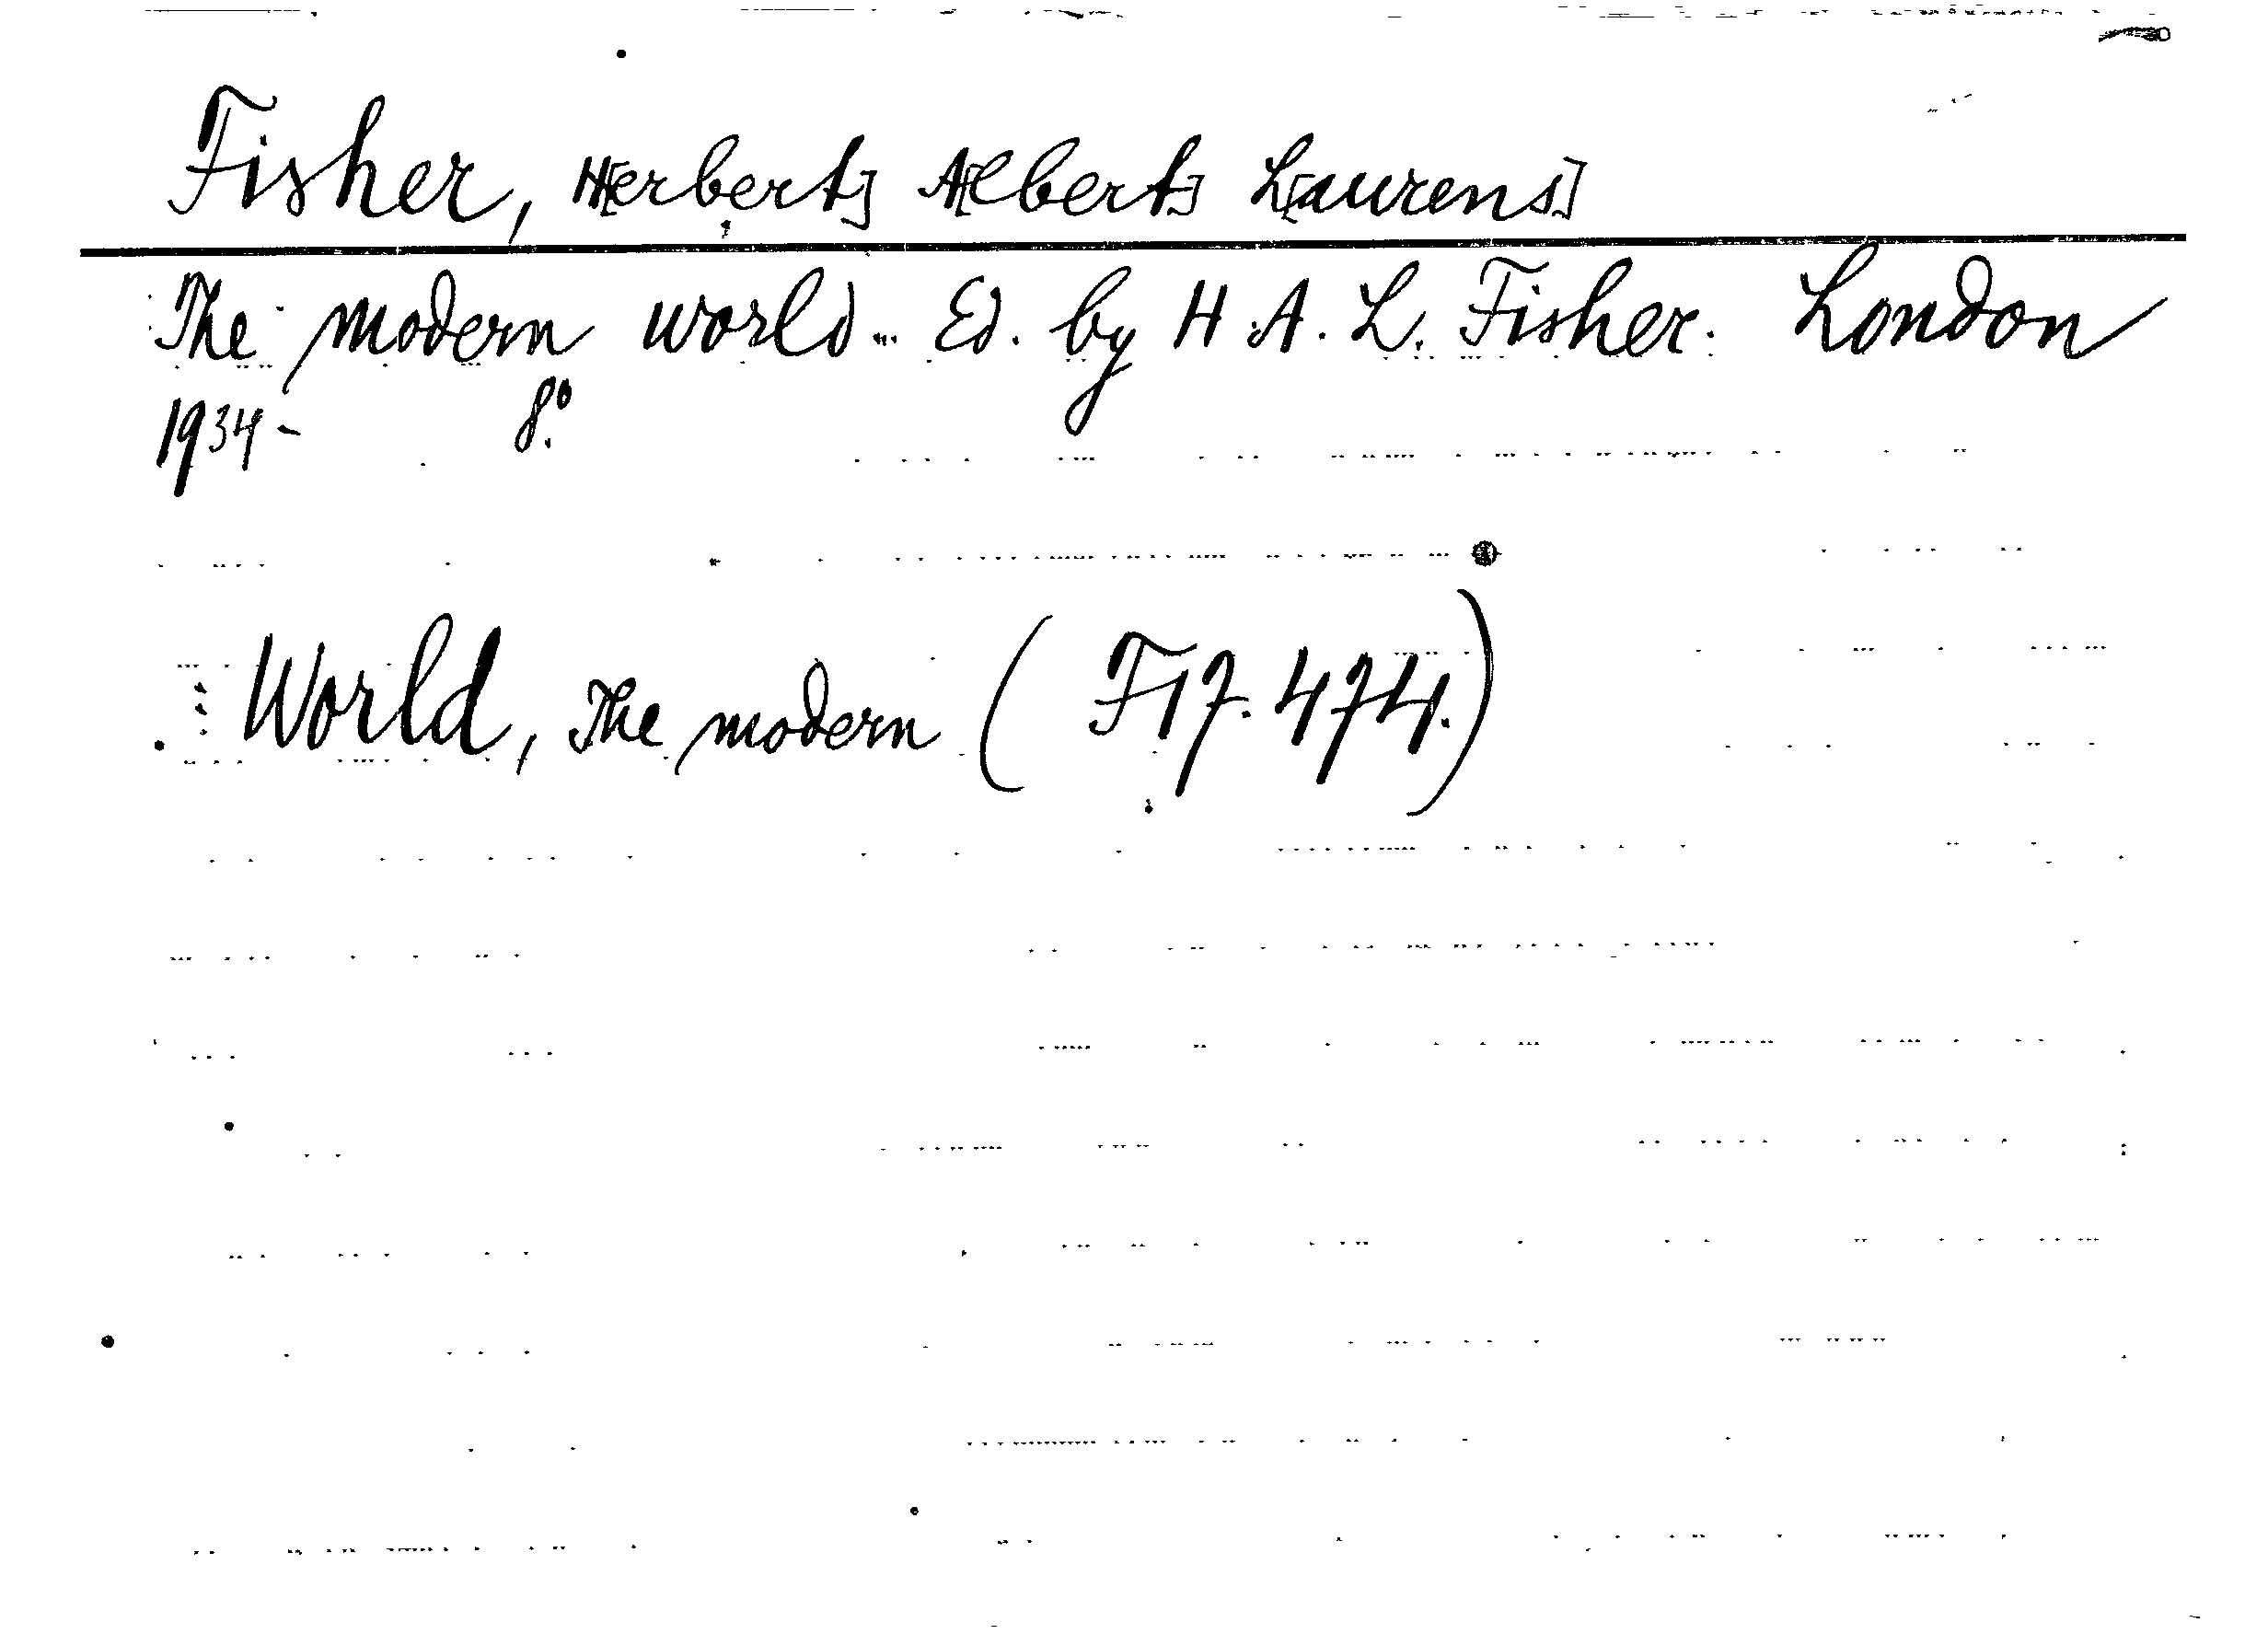 Fisher, H[erbert] A[lbert] L[aurens]
The modern world... Ed. by H. A. L. Fisher. London
1934- 8°.
World, The modern (F17.474.)